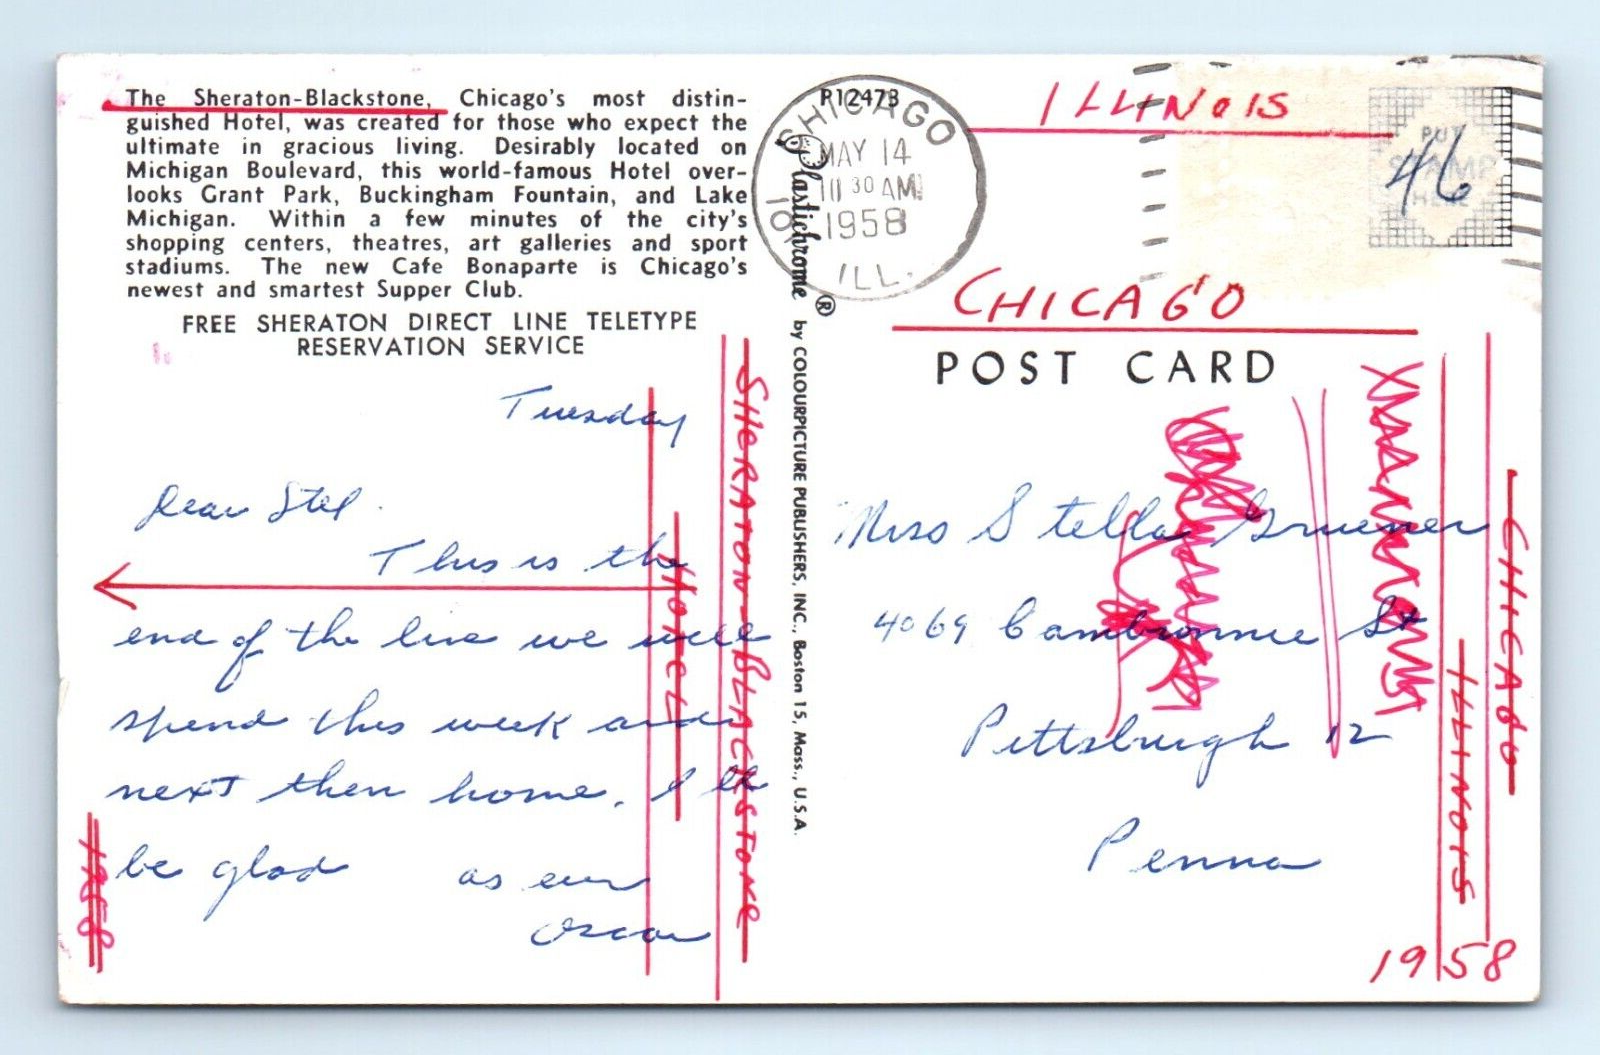 The Sheraton-Blackstone, Chicago's most distin-
guished Hotel, was created for those who expect the
ultimate in gracious living. Desirably located on
Michigan Boulevard, this world-famous Hotel over-
looks Grant Park, Buckingham Fountain, and Lake
Michigan. Within a few minutes of the city's
shopping centers, theatres, art galleries and sport
stadiums. The new Cafe Bonaparte is Chicago's
newest and smartest Supper Club.
FREE SHERATON DIRECT LINE TELETYPE
RESERVATION SERVICE
Tuesday
Dear Stel.
This is the
end of the line we will
spend this week and
next then home. I'll
be glad as ever
Oscar
1958
HOTEL
SHERATON-BLACKSTONE
Plastichrome® by COLOURPICTURE PUBLISHERS, INC., Boston 15, Mass., U.S.A.
R12473
CHICAGO
MAY 14
30 AM
1958
ILL.
ILLINOIS
PUT
STAMP
HERE
46
CHICAGO
POST CARD
Miss Stella Gruener
4069 Cambronne St
Pittsburgh 12
Penna
CHICAGO
ILLINOIS
1958